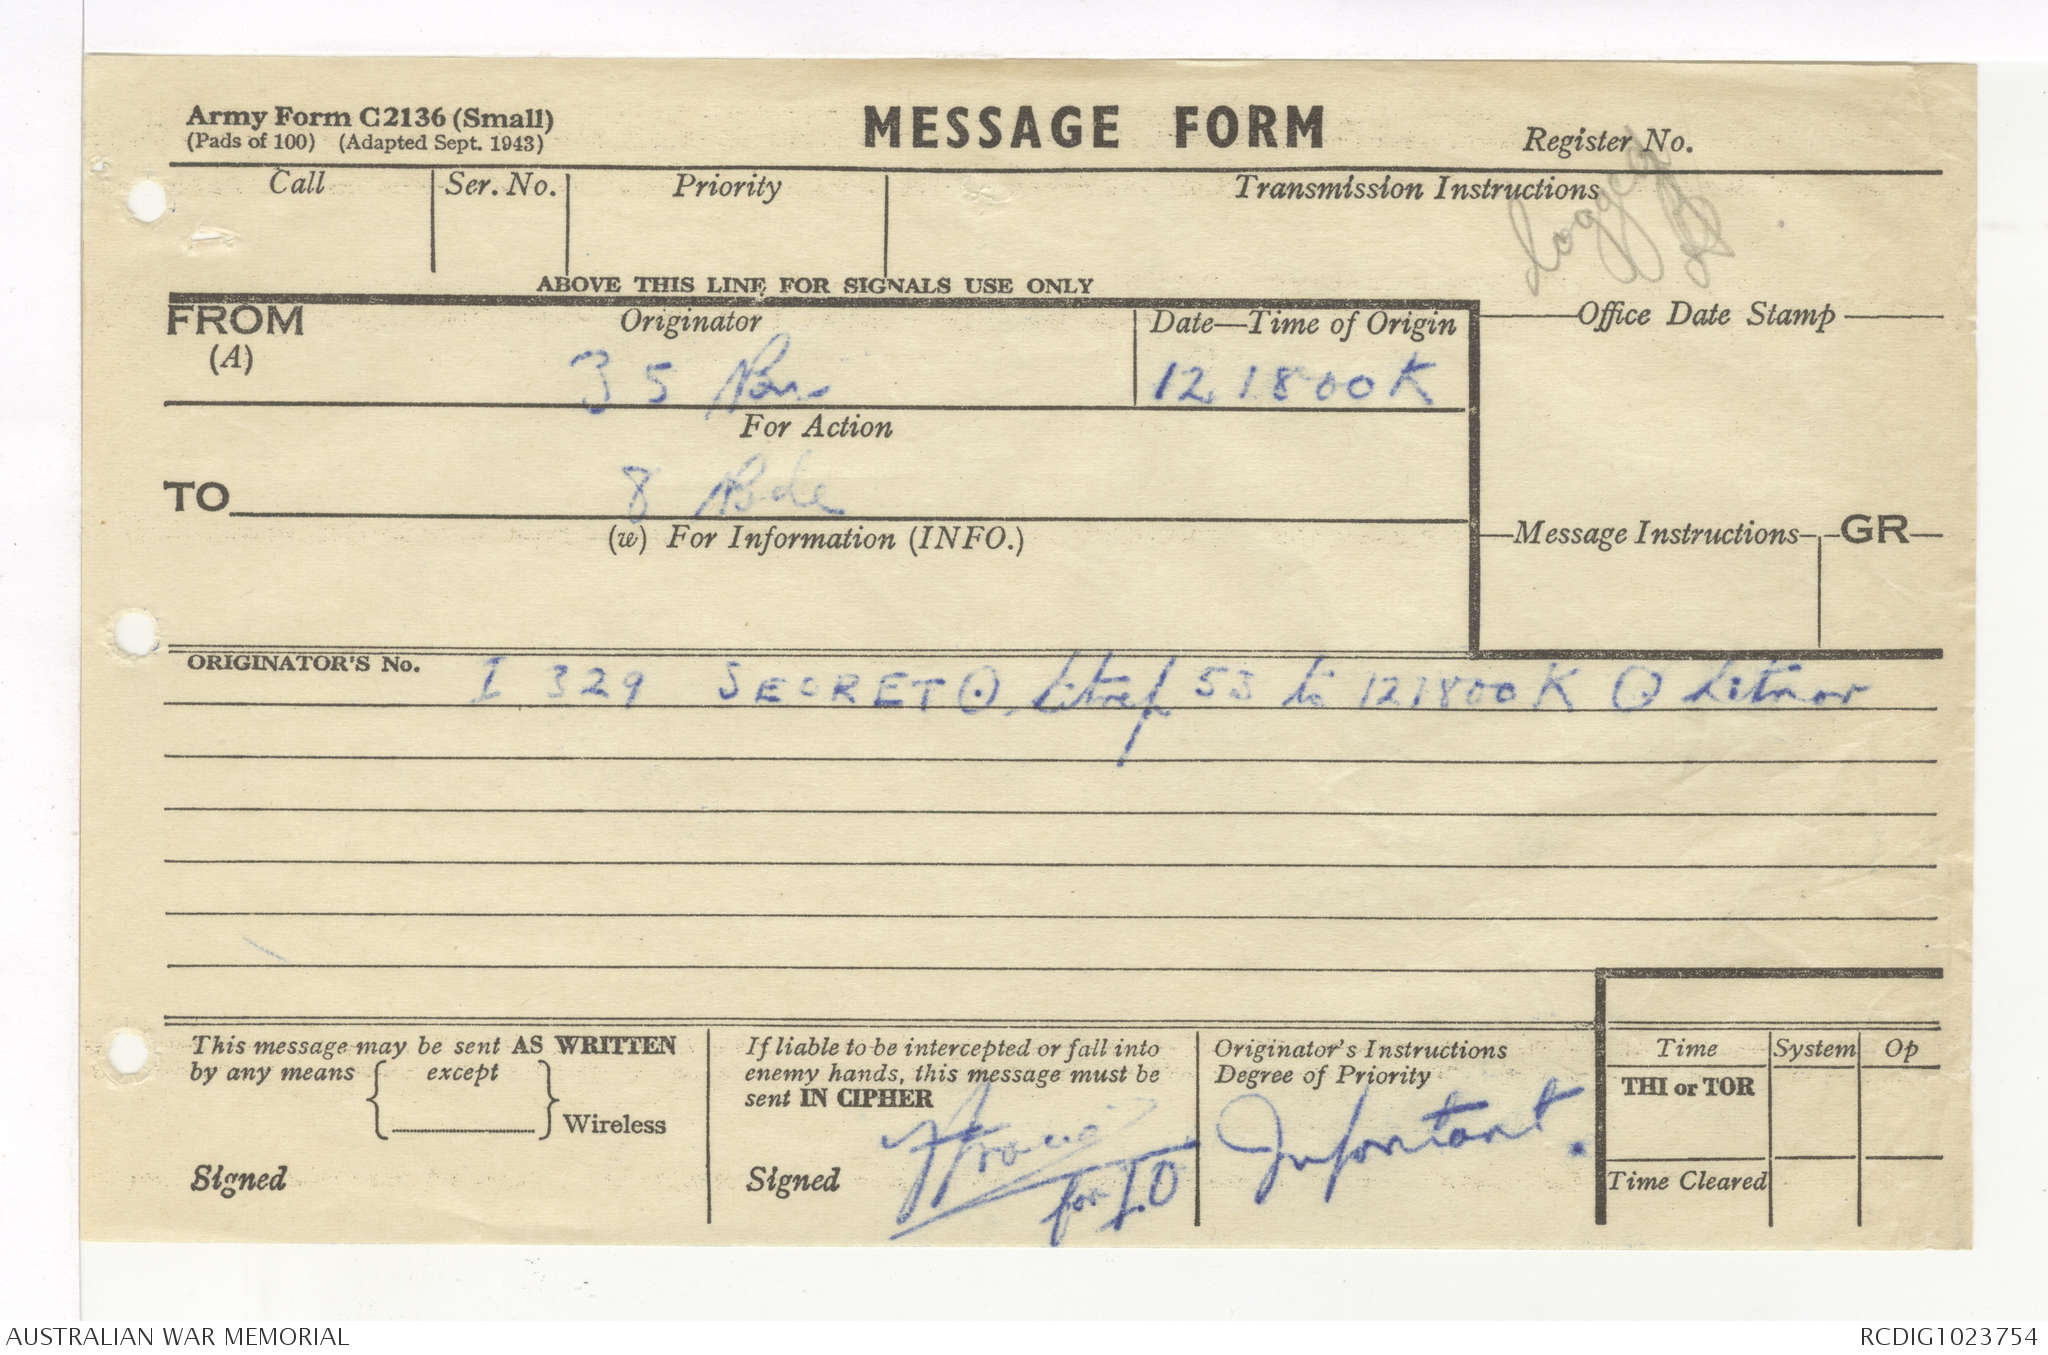 Army Form C2136 (Small)
(Pads of 100) (Adapted Sept. 1943)
MESSAGE FORM
Register No.
Call
Ser. No.
Priority
Transmission Instructions
logged
ABOVE THIS LINE FOR SIGNALS USE ONLY
FROM
(A)
Originator
Date—Time of Origin
Office Date Stamp
35
121800K
For Action
TO
8 Bde
(w) For Information (INFO.)
Message Instructions
GR
ORIGINATOR'S No.
I 329 SECRET ⊙ Sitrep 53 to 121800K ⊙ Sitnor
This message may be sent AS WRITTEN
by any means { except } Wireless
Signed
If liable to be intercepted or fall into
enemy hands, this message must be
sent IN CIPHER
Signed
for I.O
Originator's Instructions
Degree of Priority
Important.
Time
System
Op
THI or TOR
Time Cleared
AUSTRALIAN WAR MEMORIAL
RCDIG1023754